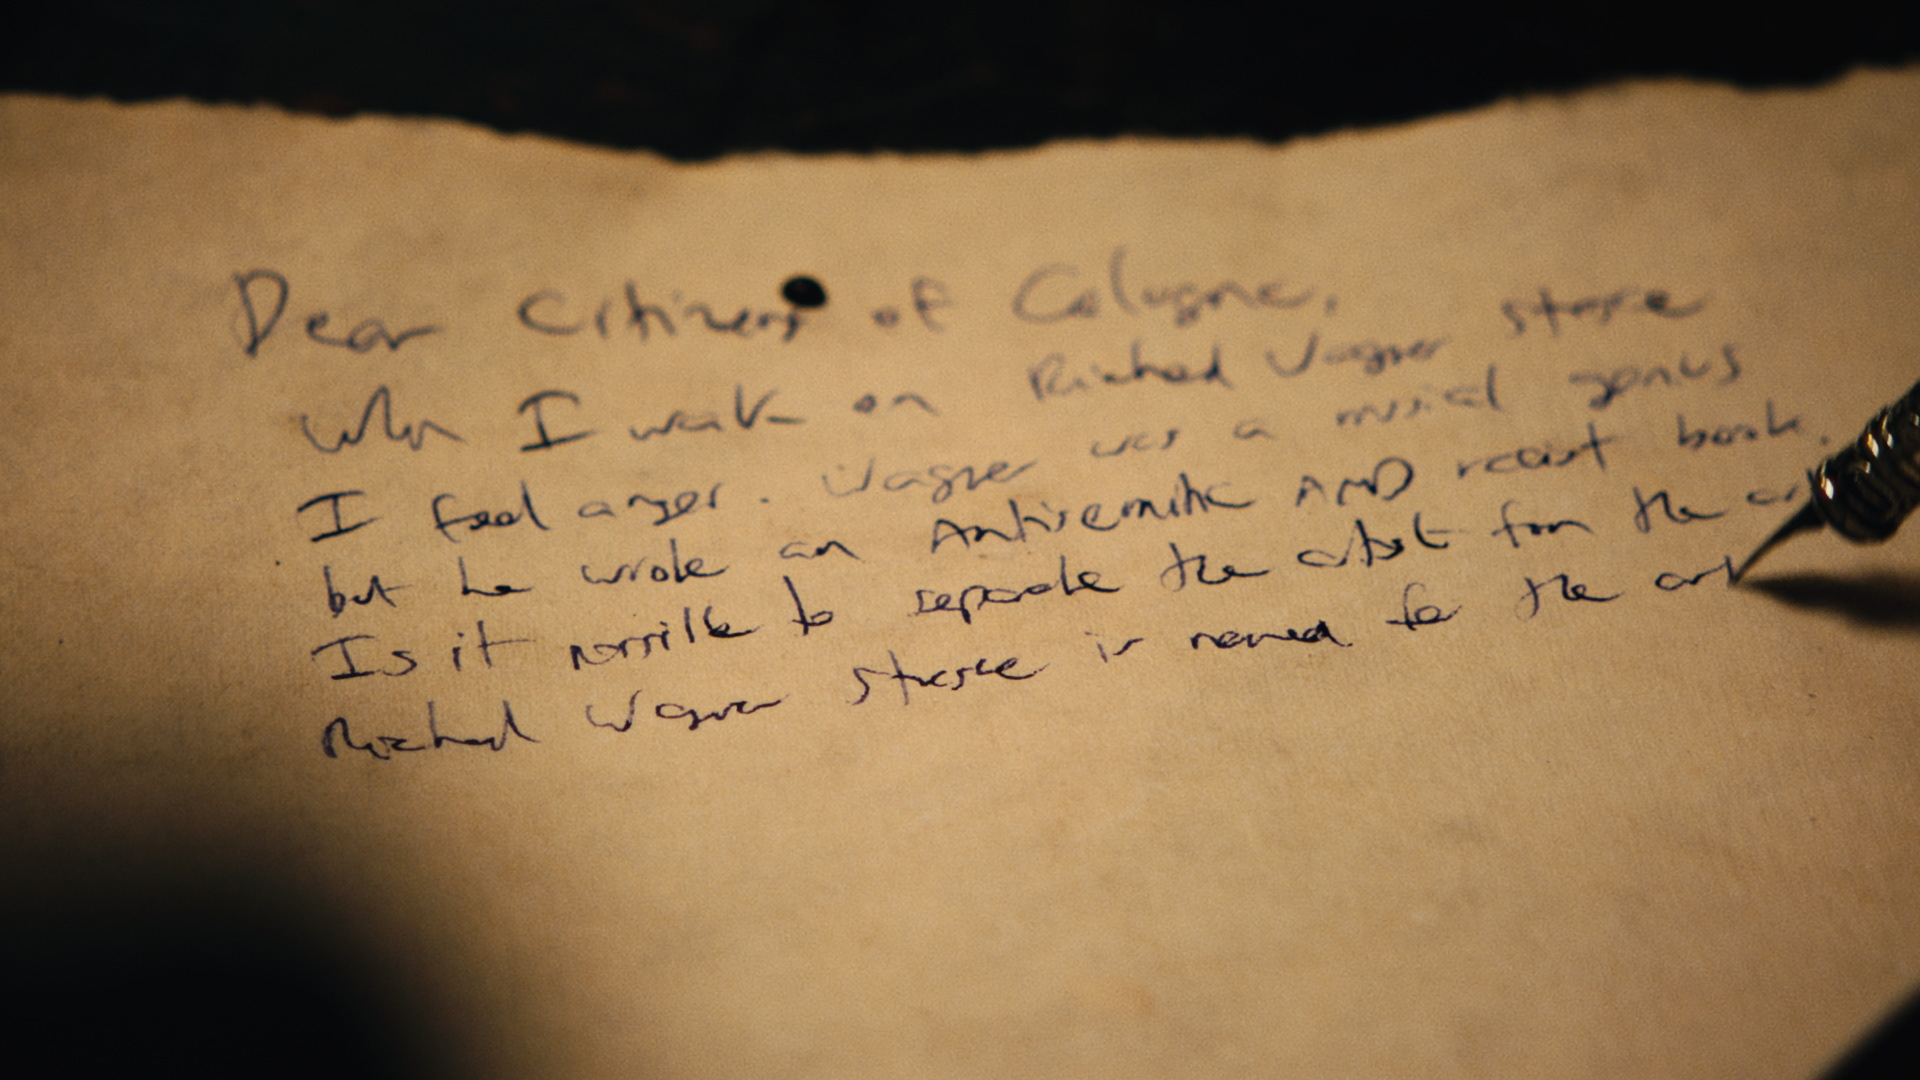 Dear Citizens of Cologne,
When I walk on Richard Wagner strasse
I feel anger. Wagner was a musical genius
but he wrote an Antisemitic AND racist book.
Is it possible to separate the artist from the art
Richard Wagner strasse is named for the art